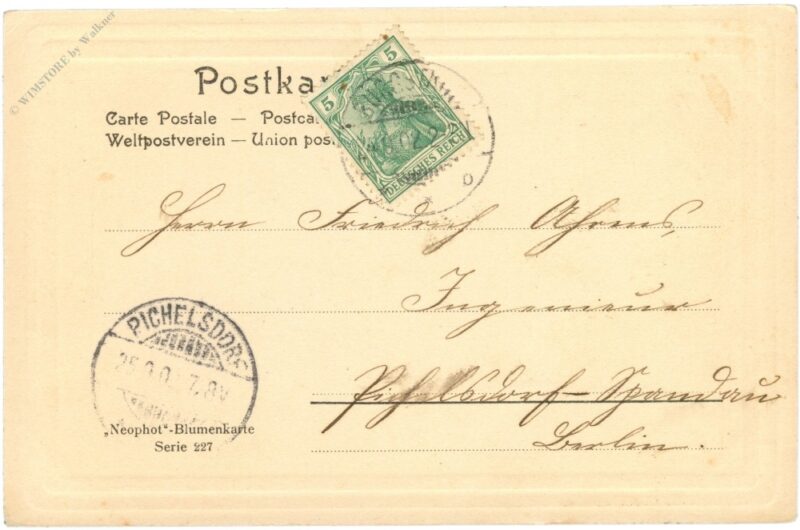 © WIMSTORE by Walkner
Postka
Carte Postale — Postca
Weltpostverein — Union pos
5
5
DEUTSCHES REICH
Herrn Friedrich Ahrens,
Ingenieur
Pichelsdorf-Spandau
Berlin.
PICHELSDORF
„Neophot"-Blumenkarte
Serie 227